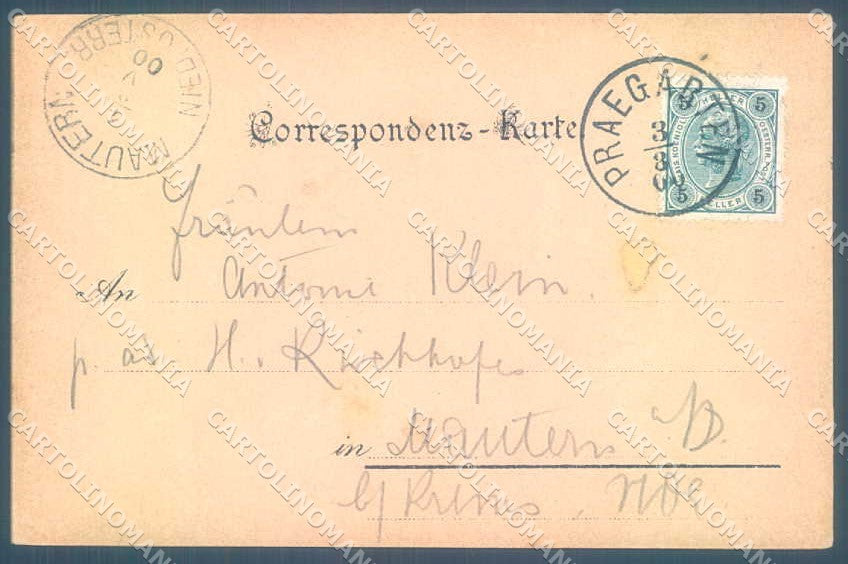 MAUTERN
NIED. OSTERR.
00
Correspondenz-Karte.
PRAEGARTEN
3/8
00
5 HELLER 5
5 HELLER 5
Fräulein
An Antonie Klein.
p. ad. H. Kirchhofer
in Mautern a/D.
b/ Krems, NÖe
CARTOLINOMANIA